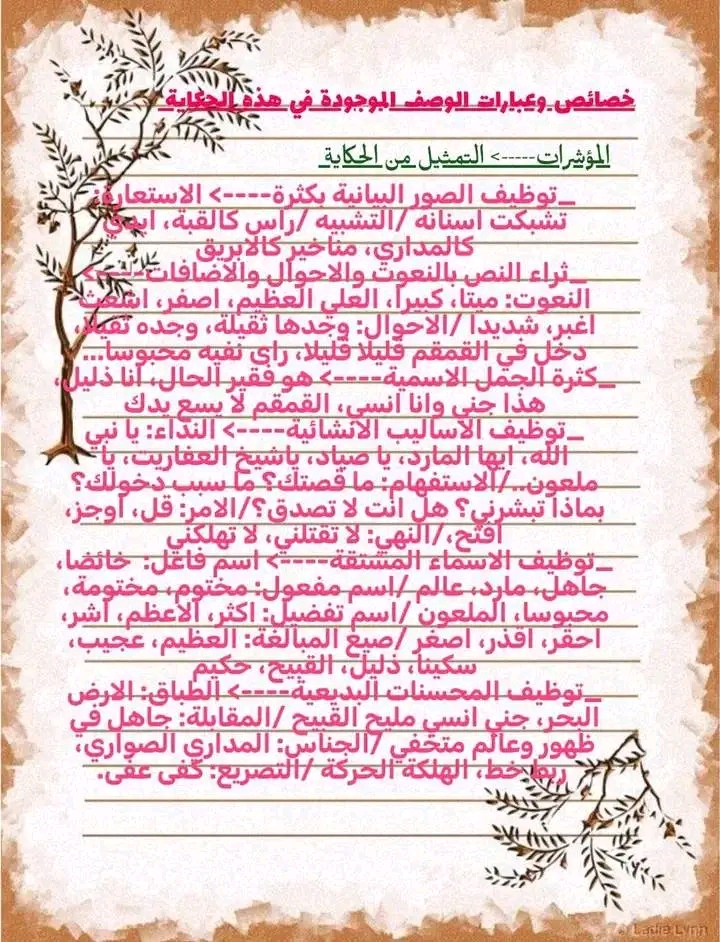 خصائص وعبارات الوصف الموجودة في هذه الحكاية
المؤشرات-----> التمثيل من الحكاية
_توظيف الصور البيانية بكثرة----> الاستعارة:
تشبكت اسنانه /التشبيه /راس كالقبة، ايدي
كالمداري، مناخير كالابريق
_ثراء النص بالنعوت والاحوال والاضافات---->
النعوت: ميتا، كبيرا، العلي العظيم، اصفر، اشعث
اغبر، شديدا /الاحوال: وجدها ثقيلة، وجده ثقيلا،
دخل في القمقم قليلا قليلا، راى نفيه محبوسا...
_كثرة الجمل الاسمية----> هو فقير الحال، انا ذليل،
هذا جني وانا انسي، القمقم لا يسع يدك
_توظيف الاساليب الانشائية----> النداء: يا نبي
الله، ايها المارد، يا صياد، ياشيخ العفاريت، يا
ملعون../الاستفهام: ما قصتك؟ ما سبب دخولك؟
بماذا تبشرني؟ هل انت لا تصدق؟/الامر: قل، اوجز،
افتح،/النهي: لا تقتلني، لا تهلكني
_توظيف الاسماء المشتقة----> اسم فاعل: خائضا،
جاهل، مارد، عالم /اسم مفعول: مختوم، مختومة،
محبوسا، الملعون /اسم تفضيل: اكثر، الاعظم، اشر،
احقر، اقذر، اصغر /صيغ المبالغة: العظيم، عجيب،
سكينا، ذليل، القبيح، حكيم
_توظيف المحسنات البديعية----> الطباق: الارض
البحر، جني انسي مليح القبيح /المقابلة: جاهل في
ظهور وعالم متخفي /الجناس: المداري الصواري،
ربط خط، الهلكة الحركة /التصريع: كفى عفى.
Ladie Lynn